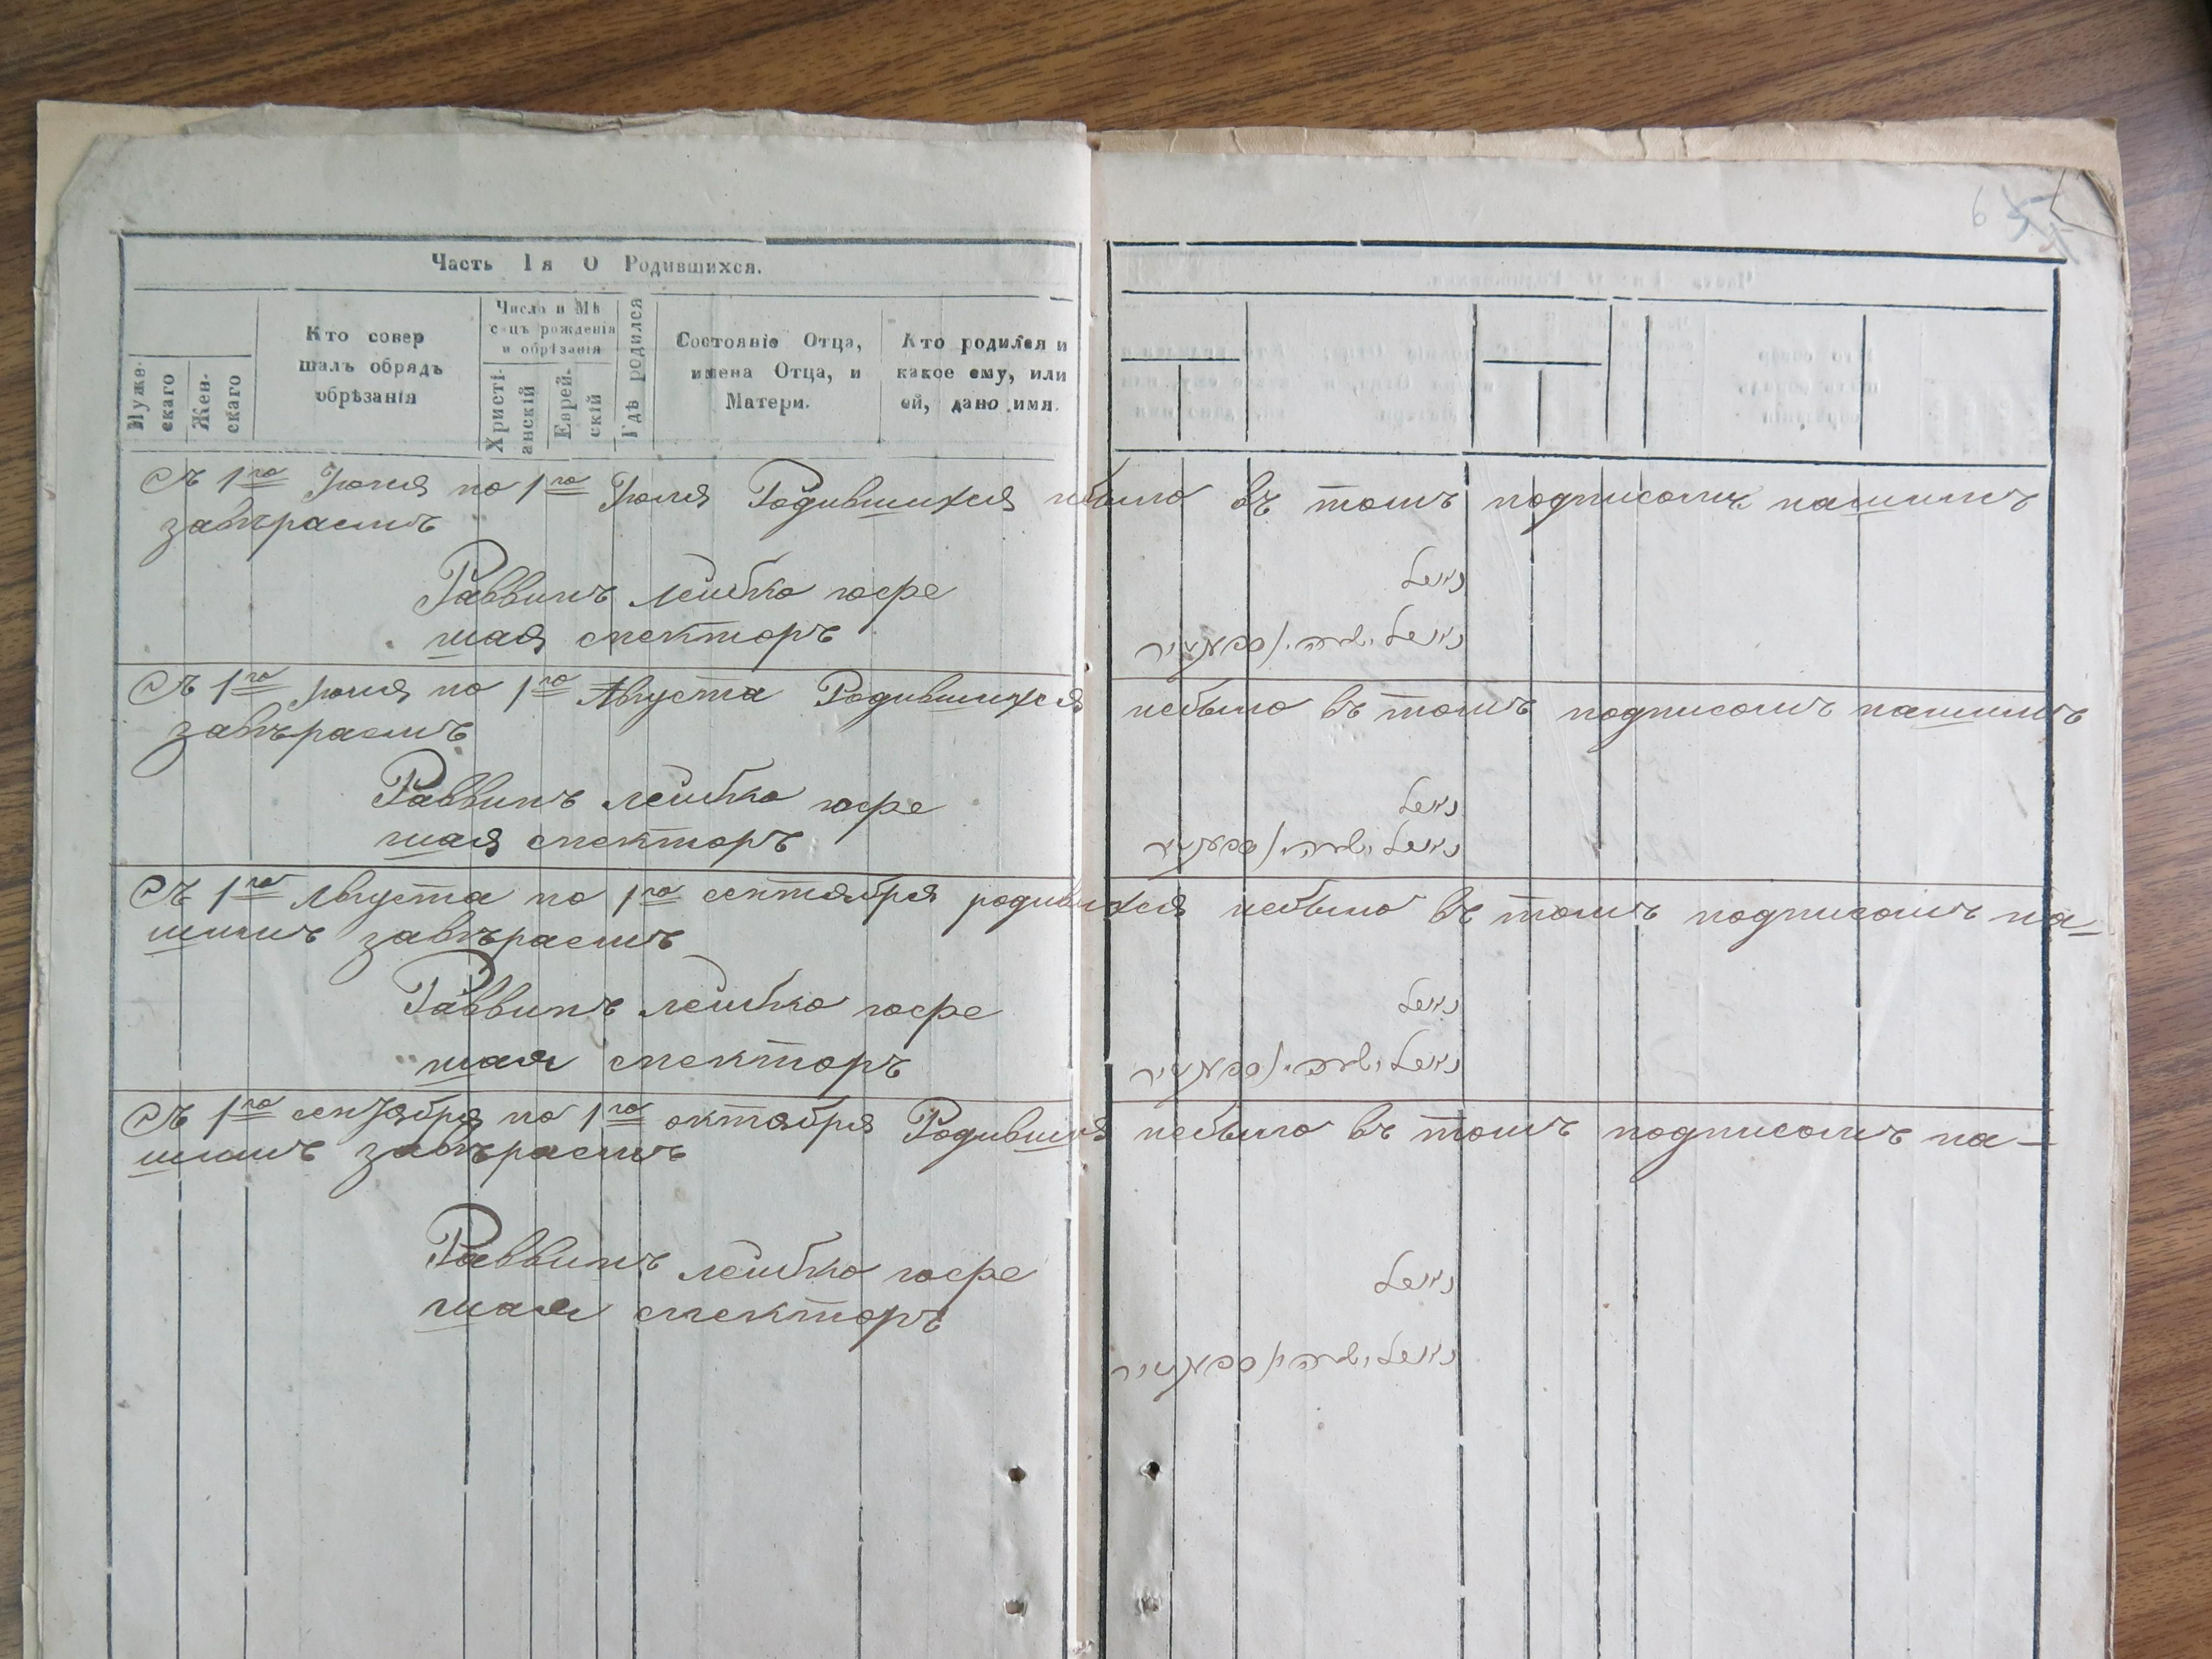 Часть 1я О Родившихся.
Мужескаго
Женскаго
Кто совер
шалъ обрядъ
обрѣзанія
Число и Мѣ
сяцъ рожденія
и обрѣзанія
Христі-
анскій
Еврей-
скій
Гдѣ родился
Состояніе Отца,
имена Отца, и
Матери.
Кто родился и
какое ему, или
ей, дано имя.
6
Съ 1го Іюня по 1го Іюля Родившихся небыло въ томъ подписомъ нашимъ
завѣраемъ
Раввинъ Лейбко юфре
шая спекторъ
Съ 1го Іюля по 1го Августа Родившихся небыло въ томъ подписомъ нашимъ
завѣраемъ
Раввинъ лейбко юфре
шая спекторъ
Съ 1го Августа по 1го сентября родившихся небыло въ томъ подписомъ на-
шимъ завѣраемъ
Раввинъ лейбко юфре
шая спекторъ
Съ 1го сентября по 1го октября Родившихся небыло въ томъ подписомъ на-
шимъ завѣраемъ
Раввинъ лейбко юфре
шая спекторъ